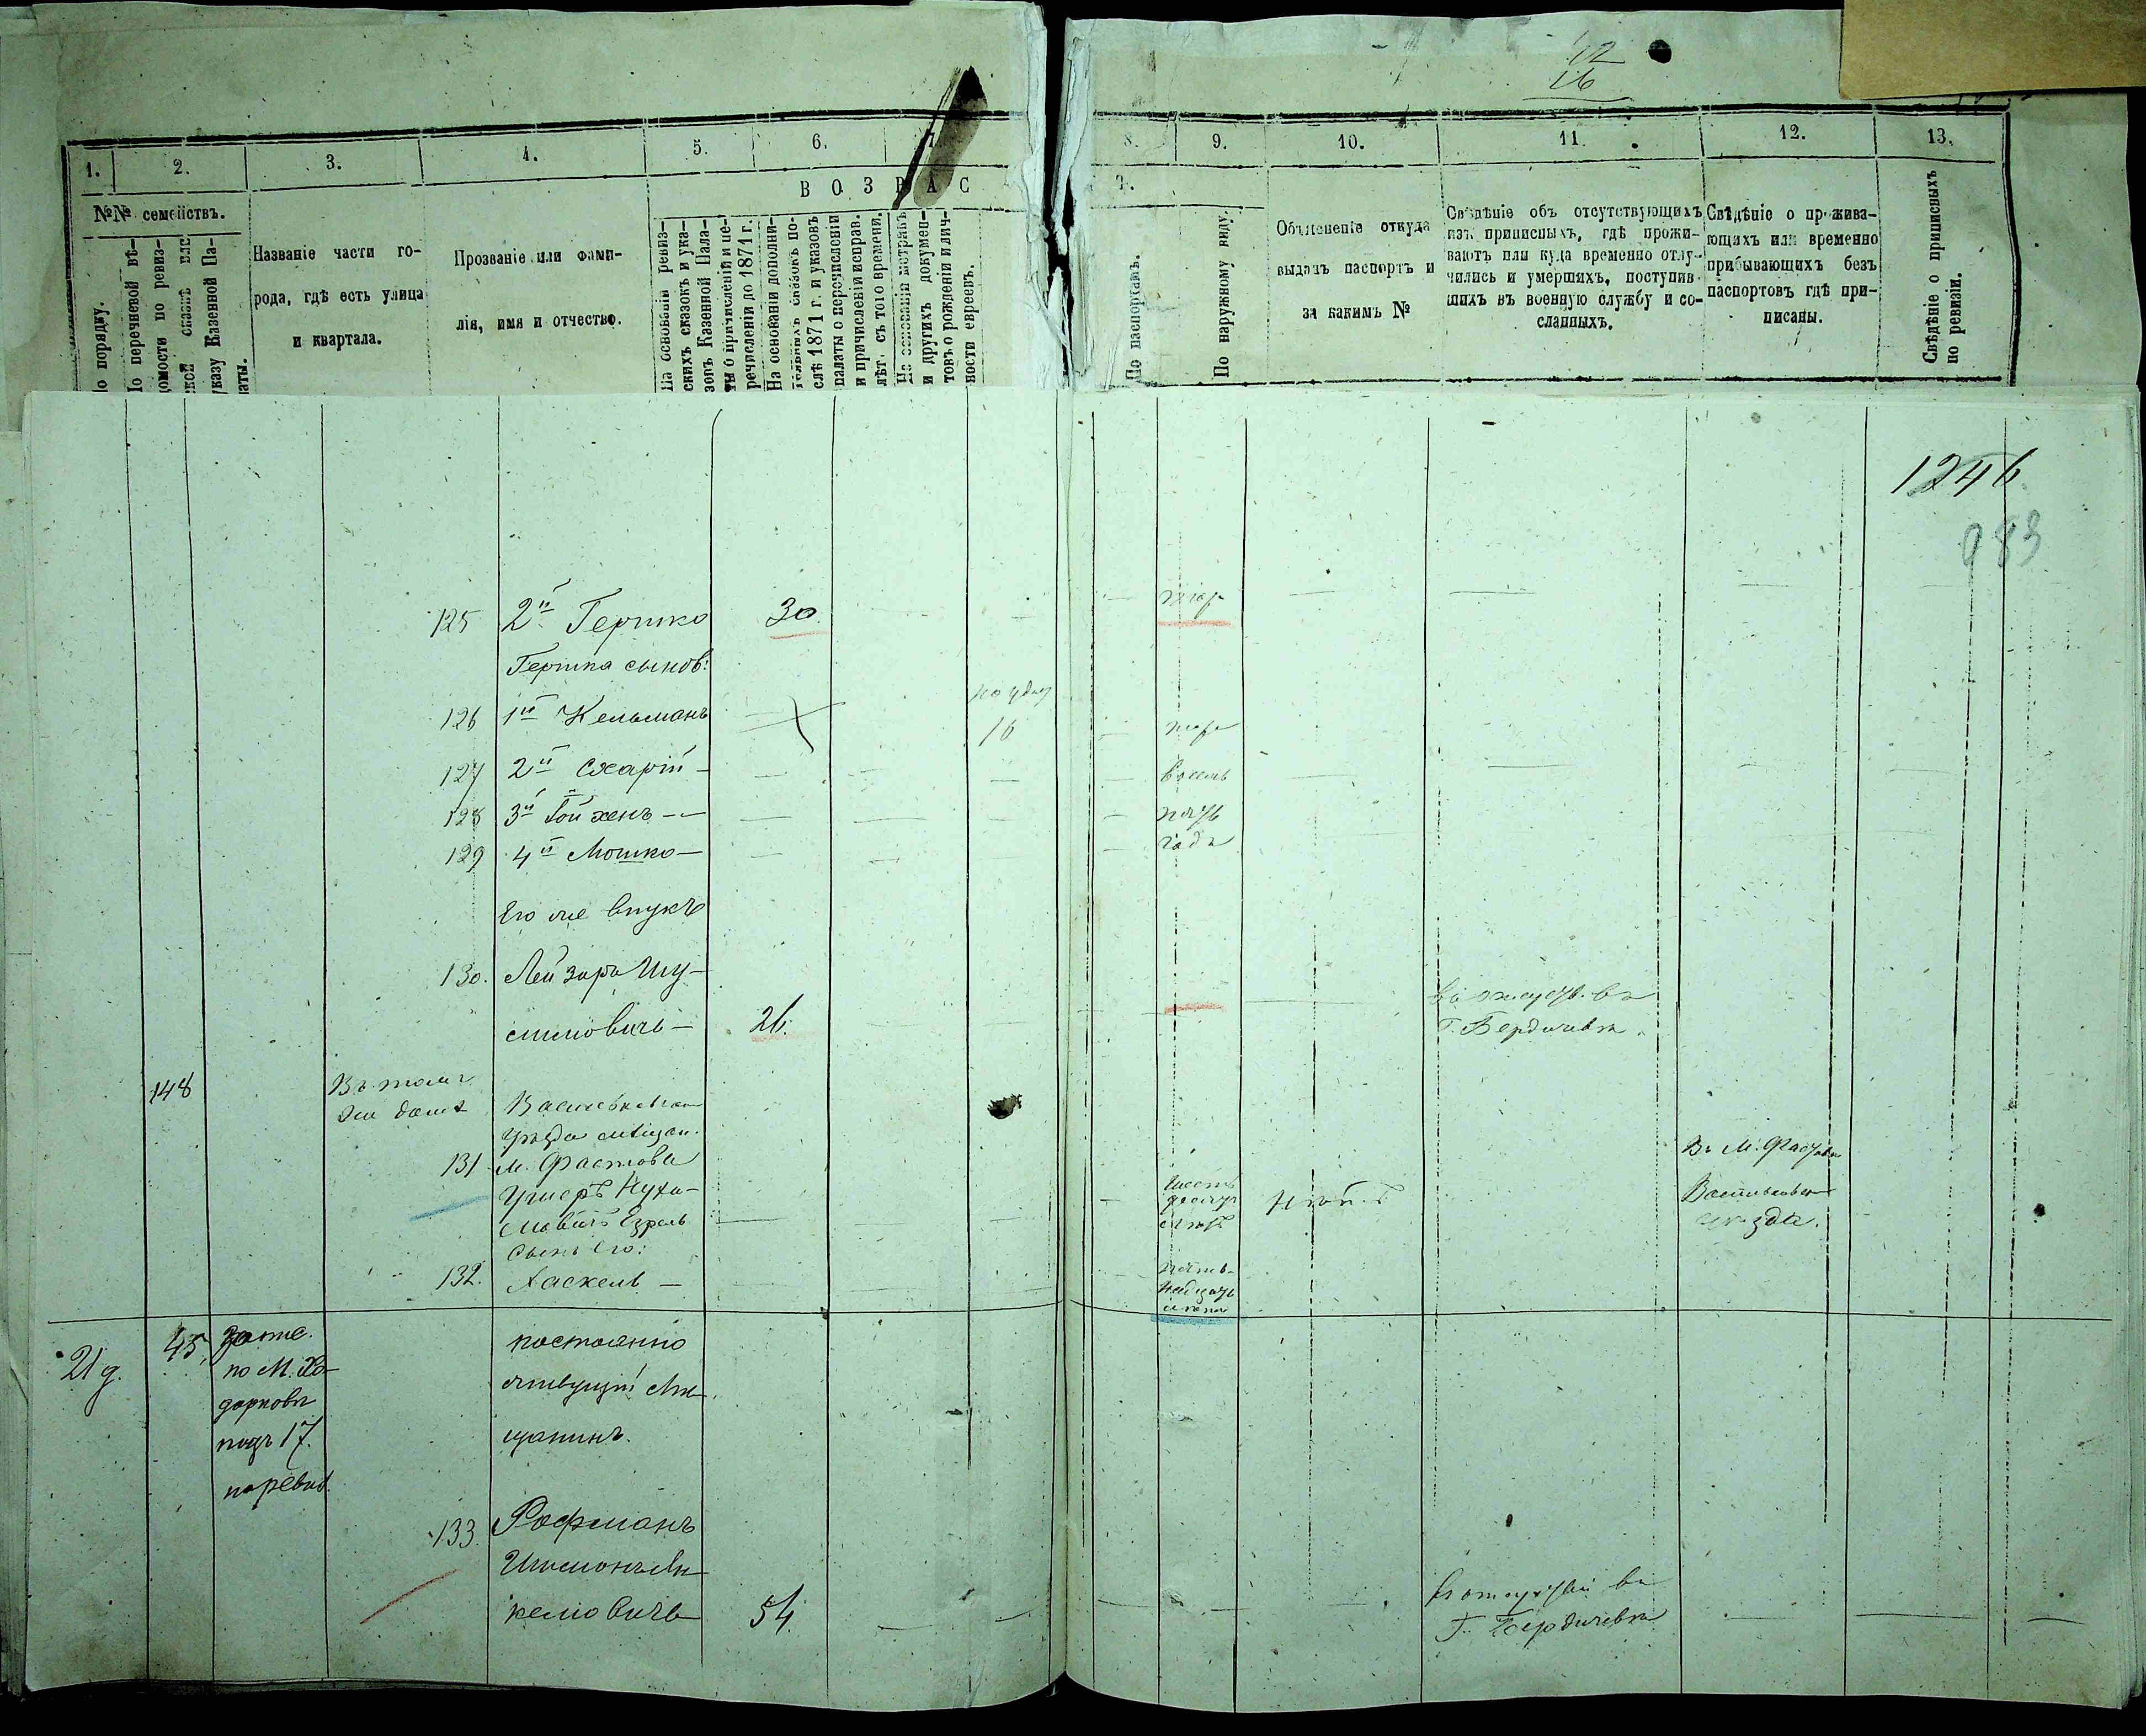 12
16
1. 2. 3. 4. 5. 6. 7. 8. 9. 10. 11. 12. 13.
№№ семействъ.
В О З Р А С Т.
По порядку.
По перечневой вѣ-
домости по ревиз-
ской сказкѣ или
указу Казенной Па-
латы.
Названіе части го-
рода, гдѣ есть улица
и квартала.
Прозваніе или фами-
лія, имя и отчество.
На основаніи ревиз-
скихъ сказокъ и ука-
зовъ Казенной Пала-
ты о причисленіи и пе-
речисленіи до 1871 г.
На основаніи дополни-
тельныхъ сказокъ по-
слѣ 1871 г. и указовъ
палаты о перечисленіи
и причисленіи исправ.
лѣт. съ того времени.
На основаніи метрикъ
и другихъ докумен-
товъ о рожденіи и лич-
ности евреевъ.
По паспортамъ.
По наружному виду.
Объясненіе откуда
выданъ паспортъ и
за какимъ №
Свѣдѣніе объ отсутствующихъ
изъ приписныхъ, гдѣ прожи-
ваютъ или куда временно отлу-
чились и умершихъ, поступив-
шихъ въ военную службу и со-
сланныхъ.
Свѣдѣніе о прожива-
ющихъ или временно
прибывающихъ безъ
паспортовъ гдѣ при-
писаны.
Свѣдѣніе о приписныхъ
по ревизіи.
1246
083
125 2й Гершко 30
Гершка сынов:
126 1й Кельманъ 16
127 2й Схарій - восемь
128 3й Гойхенъ - пять
129 4й Мошко - года
Его же внукъ
130. Лейзаръ Шу-
лимовичъ - 26.
въ отсутв. въ
г. Бердичевѣ.
148 Въ томъ
же домѣ
Васильковскаго
уѣзда мѣщан.
131 м. Фастова
Въ М. Фастовѣ
Васильковск.
уѣзда.
Сынъ его:
132. Хаскель -
21 д. 45,
по М. Хо-
дорковѣ
подъ 17.
по ревиз.
постоянно
живущій Мѣ-
щанинъ.
133. Рофманъ
Шимонъ Ян-
келіовичъ 54.
въ отсутствіи въ
Г. Бердичевѣ